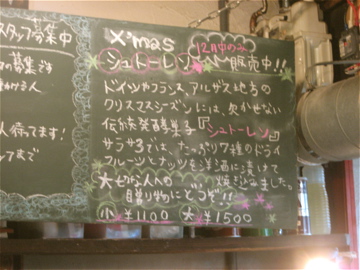 スタッフ募集中
の募集です
人待ってます!
まで
X'mas 12月中のみ
シュトーレン 販売中!!
ドイツやフランス、アルザス地方の
クリスマスシーズンには、欠かせない
伝統発酵菓子『シュトーレン』
サラサ3では、たっぷり7種のドライ
フルーツとナッツを洋酒に漬けて
焼き込みました。
大切な人への
贈り物にどうぞ!!
小 ¥1100 大 ¥1500